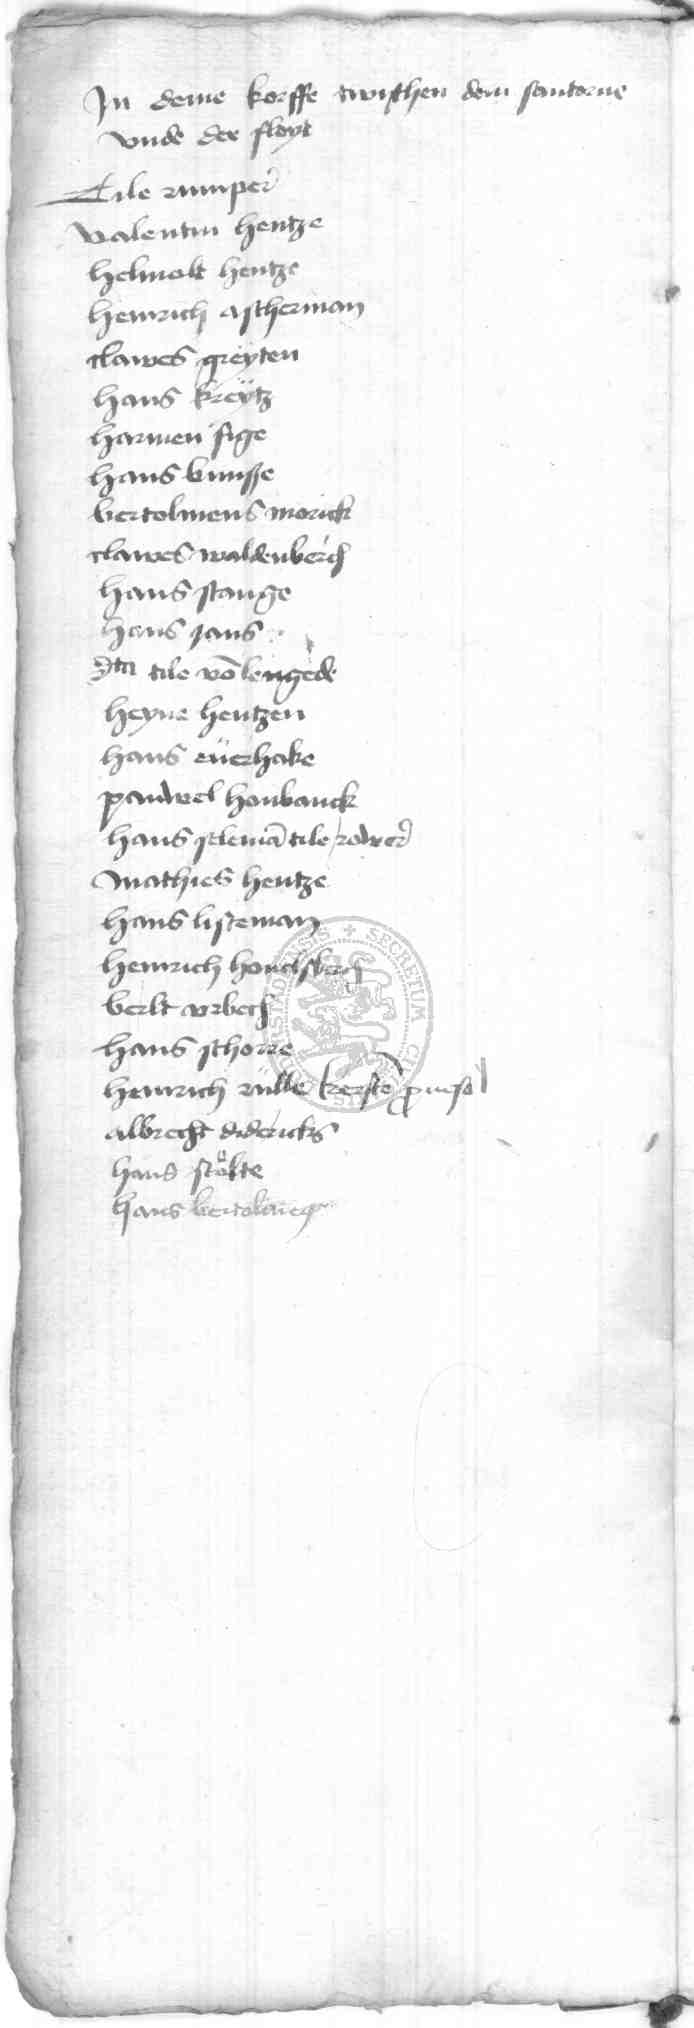 In deme korffe twisschen dem santorne
vnde der floyt
Tile rumper
valentin hentze
helmolt hentze
heinrich ascherman
clawes greyten
hans kreÿtz
harmen sige
hans bunsse
bertolmeus morick
clawes waldenberch
hans stange
hans jans
tile vō lengede
heyne hentzen
hans eüerhake
pauwel houbanck
hans stlemā tile
mathies hentze
hans listeman
heinrich
berlt vrbech
hans schorre
heinrich rülle kerstē
albrecht diderickß
hans stöbte
hans
SECRETUM